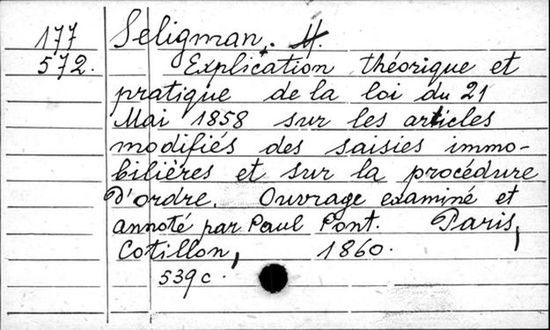 177 Seligman, M.
572. Explication théorique et
pratique de la loi du 21
Mai 1858 sur les articles
modifiés des saisies immo-
bilières et sur la procédure
d'ordre. Ouvrage examiné et
annoté par Paul Pont. Paris,
Cotillon, 1860.
539 c.